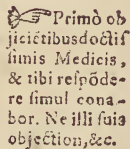 ☞Primò ob
jiciẽtibus doctiſ
ſimis Medicis,
& tibi reſpõde-
re ſimul cona-
bor. Ne illi ſuis
objection, &c.